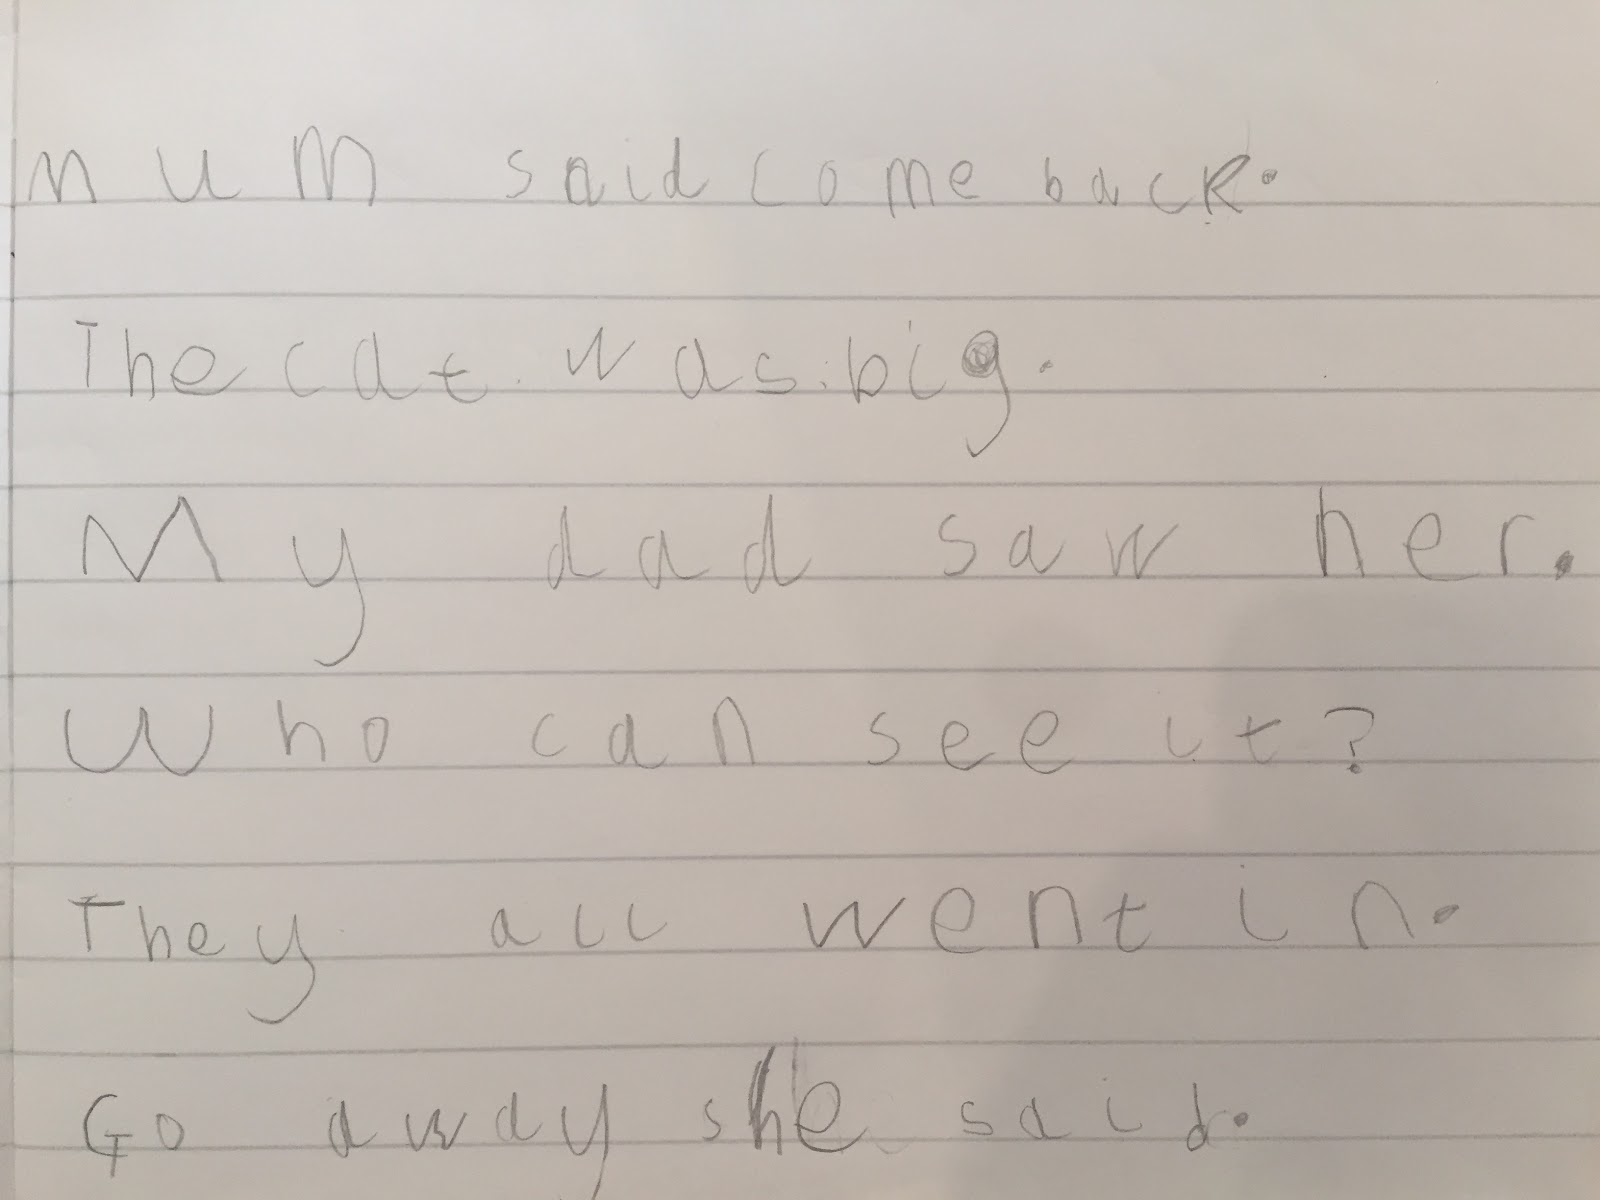 Mum said come back.
The cat was big.
My dad saw her.
Who can see it?
They all went in.
Go away she said.